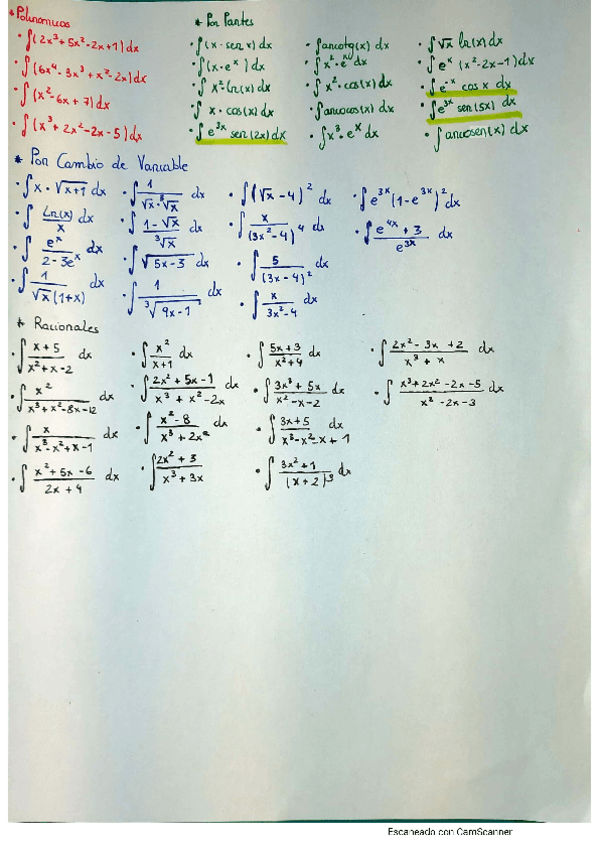 * Polinómicas
• ∫(2x³+5x²-2x+1)dx
• ∫(6x⁴-3x³+x²-2x)dx
• ∫(x²-6x+7)dx
• ∫(x³+2x²-2x-5)dx
* Por Partes
• ∫(x·sen x)dx
• ∫(x·eˣ)dx
• ∫x²·ln(x)dx
∫x·cos(x)dx
• ∫e³ˣ sen(2x)dx
• ∫arcotg(x)dx
• ∫x²·eˣ dx
• ∫x²·cos(x)dx
• ∫arcocos(x)dx
• ∫x³·eˣ dx
• ∫√x ln(x)dx
• ∫eˣ(x²-2x-1)dx
• ∫e⁻ˣ cos x dx
• ∫e³ˣ sen(5x) dx
• ∫arcosen(x) dx
* Por Cambio de Variable
• ∫x·√(x+1) dx
• ∫ Ln(x)/x dx
• ∫ eˣ/(2-3eˣ) dx
• ∫ 1/(√x(1+x)) dx
• ∫ 1/(√x·³√x) dx
• ∫ (1-√x)/³√x dx
• ∫√(5x-3) dx
• ∫ 1/³√(9x-1) dx
• ∫(√x-4)² dx
• ∫ x/(3x²-4)⁴ dx
• ∫ 5/(3x-4)² dx
• ∫ x/(3x²-4) dx
• ∫e³ˣ(1-e³ˣ)²dx
• ∫ (e⁴ˣ+3)/e³ˣ dx
* Racionales
• ∫ (x+5)/(x²+x-2) dx
• ∫ x²/(x³+x²-8x-12) dx
• ∫ x/(x³-x²+x-1) dx
• ∫ (x²+5x-6)/(2x+4) dx
• ∫ x²/(x+1) dx
• ∫ (2x²+5x-1)/(x³+x²-2x) dx
• ∫ (x²-8)/(x³+2x²) dx
• ∫ (2x²+3)/(x³+3x)
• ∫ (5x+3)/(x²+4) dx
• ∫ (3x³+5x)/(x²-x-2) dx
• ∫ (3x+5)/(x³-x²-x+1) dx
• ∫ (3x²+1)/(x+2)³ dx
• ∫ (2x²-3x+2)/(x³+x) dx
• ∫ (x³+2x²-2x-5)/(x²-2x-3) dx
Escaneado con CamScanner